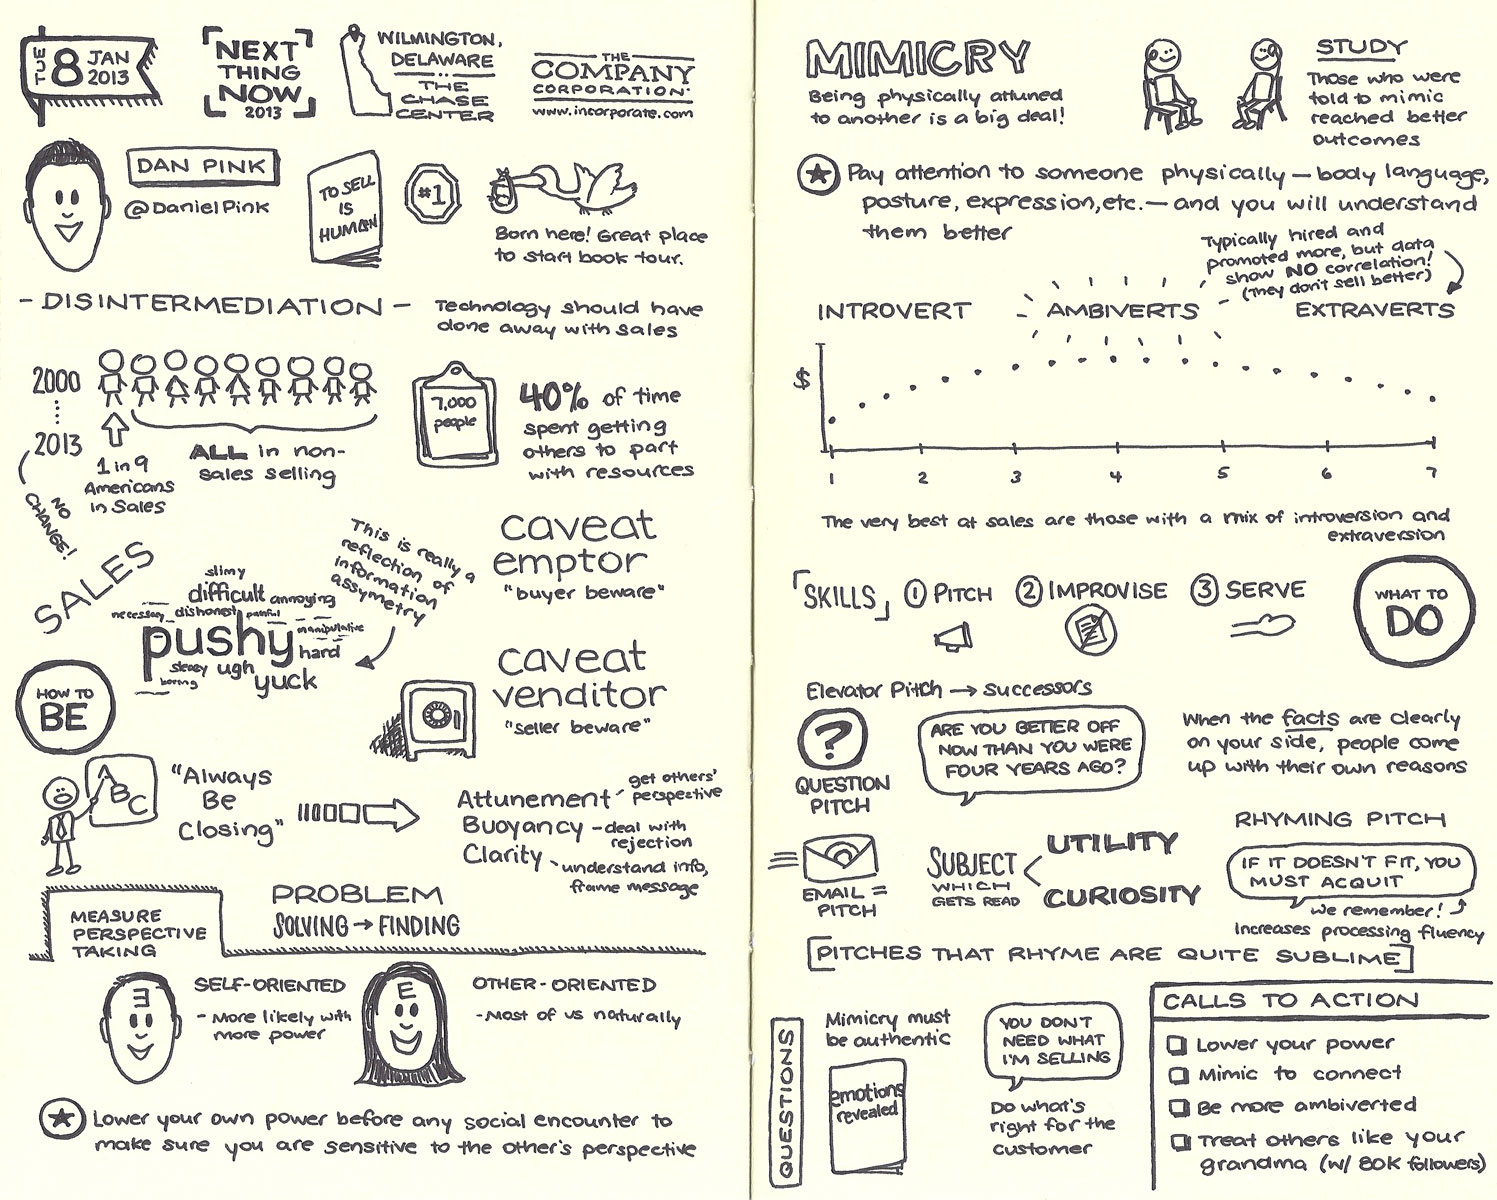 TUE 8 JAN
2013
NEXT
THING
NOW
2013
WILMINGTON,
DELAWARE
THE
CHASE
CENTER
THE
COMPANY
CORPORATION
www.incorporate.com
DAN PINK
@DanielPink
TO SELL
IS
HUMAN
#1
Born here! Great place
to start book tour.
- DISINTERMEDIATION -
Technology should have
done away with sales
2000
2013
NO
CHANGE!
1 in 9
Americans
in Sales
ALL in non-
sales selling
7,000
people
40% of time
spent getting
others to part
with resources
SALES
slimy
difficult annoying
necessary dishonest painful
pushy manipulative
hard
sleazy ugh
boring yuck
This is really a
reflection of
information
assymetry
caveat
emptor
"buyer beware"
caveat
venditor
"seller beware"
HOW TO
BE
ABC
"Always
Be
Closing"
Attunement - get others'
perspective
Buoyancy - deal with
rejection
Clarity - understand info,
frame message
PROBLEM
SOLVING → FINDING
MEASURE
PERSPECTIVE
TAKING
E
SELF-ORIENTED
- More likely with
more power
E
OTHER-ORIENTED
- Most of us naturally
Lower your own power before any social encounter to
make sure you are sensitive to the other's perspective
MIMICRY
Being physically attuned
to another is a big deal!
STUDY
Those who were
told to mimic
reached better
outcomes
Pay attention to someone physically — body language,
posture, expression, etc. — and you will understand
them better
Typically hired and
promoted more, but data
show NO correlation!
(They don't sell better)
INTROVERT AMBIVERTS EXTRAVERTS
$
1 2 3 4 5 6 7
The very best at sales are those with a mix of introversion and
extraversion
SKILLS 1 PITCH 2 IMPROVISE 3 SERVE
WHAT TO
DO
Elevator Pitch → Successors
?
QUESTION
PITCH
ARE YOU BETTER OFF
NOW THAN YOU WERE
FOUR YEARS AGO?
When the facts are clearly
on your side, people come
up with their own reasons
EMAIL =
PITCH
SUBJECT
WHICH
GETS READ
UTILITY
CURIOSITY
RHYMING PITCH
IF IT DOESN'T FIT, YOU
MUST ACQUIT
We remember!
Increases processing fluency
[PITCHES THAT RHYME ARE QUITE SUBLIME]
QUESTIONS
Mimicry must
be authentic
emotions
revealed
YOU DON'T
NEED WHAT
I'M SELLING
Do what's
right for the
customer
CALLS TO ACTION
Lower your power
Mimic to connect
Be more ambiverted
Treat others like your
grandma (w/ 80K followers)